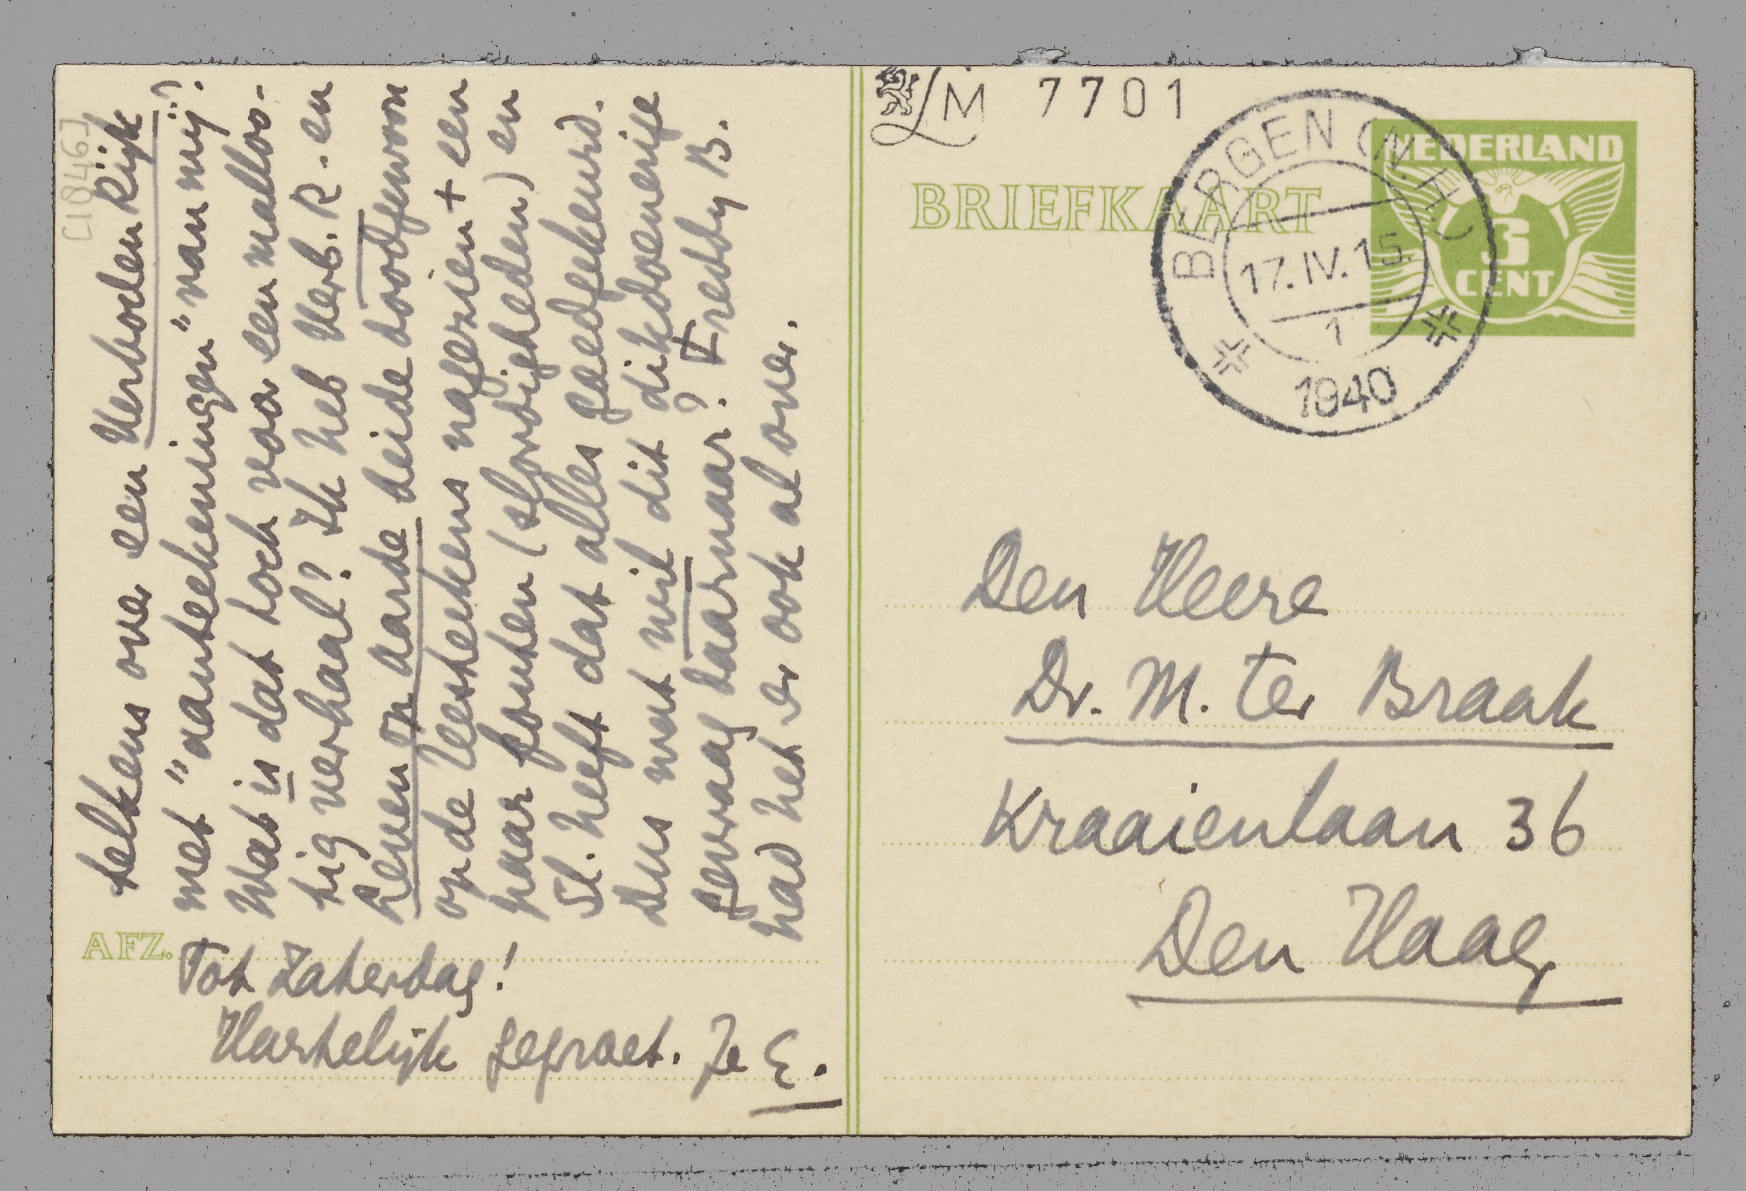 telkens over een Verboden Rijk
met "aanteekeningen" van mij?
Wat is dat toch voor een malloo-
tig verhaal? Ik heb Verb. R. en
Leven op aarde beide doodgewoon
op de leesteekens nagezien + een
paar fouten (slordigheden) en
Sl. heeft dat alles goedgekeurd.
Dus wat wil dit dikdoenerige
gevraag daarnaar? Freddy B.
had het er ook al over.
AFZ.
Tot Zaterdag!
Hartelijk gegroet. Je E.
[1846]
LM 7701
BRIEFKAART
NEDERLAND
3
CENT
BERGEN (N.H.)
17.IV.15
1
1940
Den Heere
Dr. M. ter Braak
Kraaienlaan 36
Den Haag